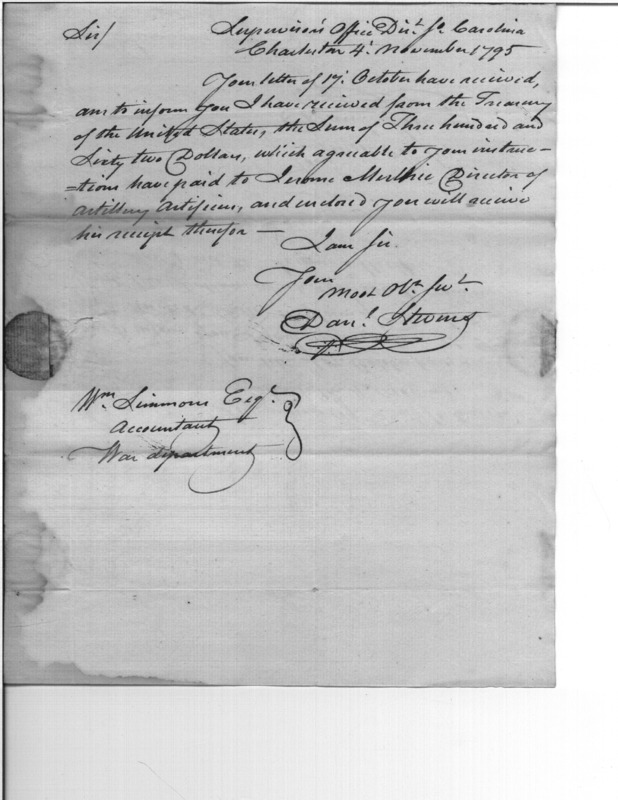 Sir/ Supervisor's Office Dist. So. Carolina
Charleston 4. November 1795
Your letter of 17. October have received,
am to inform you I have received from the Treasury
of the United States, the Sum of Three hundred and
Sixty two Dollars, which agreable to your instruc=
=tions have paid to Jerome Director of
Artillery Artificers, and enclosed you will receive
his receipt therefor —
I am Sir
Your
most Obt. Svt.
Danl. Stevens
Wm. Simmons Esqr.
Accountant
War department